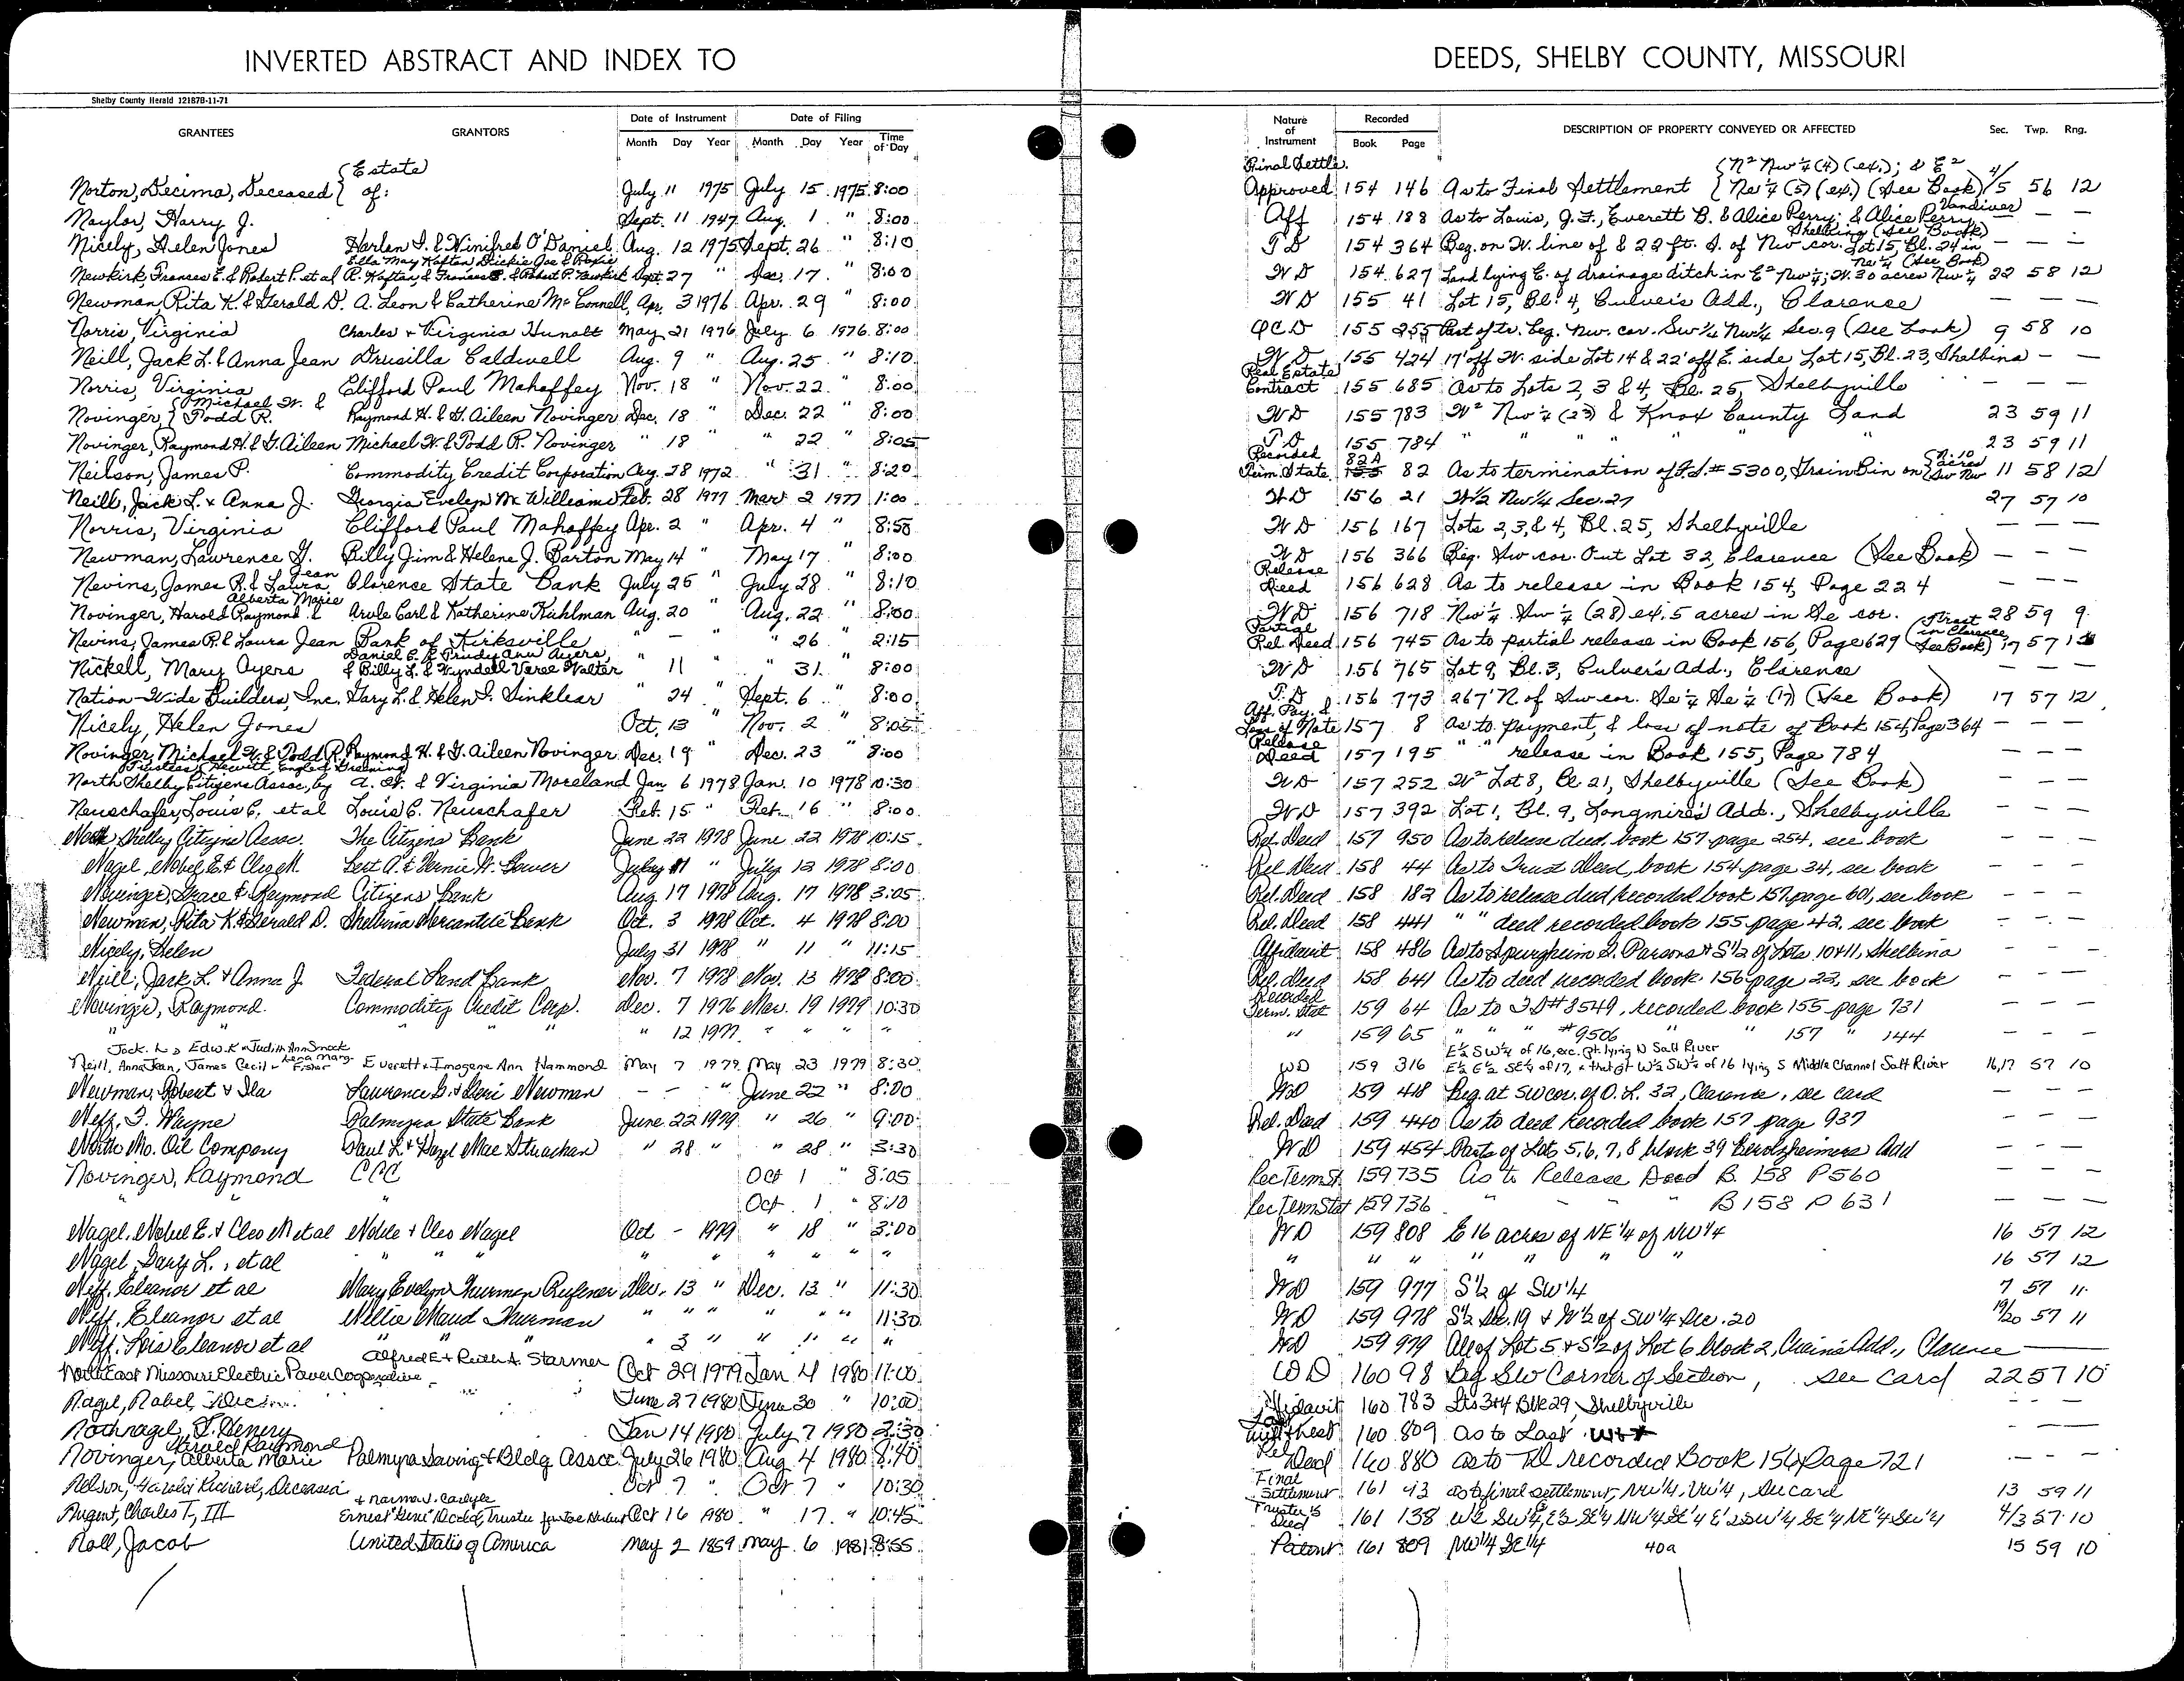 INVERTED ABSTRACT AND INDEX TO DEEDS, SHELBY COUNTY, MISSOURI
Shelby County Herald 121878-11-71
GRANTEES GRANTORS Date of Instrument Month Day Year Date of Filing Month Day Year Time of Day Nature of Instrument Recorded Book Page DESCRIPTION OF PROPERTY CONVEYED OR AFFECTED Sec. Twp. Rng.
Norton, Decima, Deceased { Estate of: July 11 1975 July 15 1975 8:00 Final Settle. Approved 154 146 As to Final Settlement { N² Nw ¼ (4) (ex.); & E² Ne ¼ (5) (ex.) (See Book) 4/5 56 12
Naylor, Harry J. Sept. 11 1947 Aug. 1 " 8:00 Aff 154 188 As to Louis, J. F., Everett B. & Alice Perry; & Alice Perry Vandiver — —
Nicely, Helen Jones Harlen I. & Winifred O'Daniel Aug. 12 1975 Sept. 26 " 8:10 TD 154 364 Beg. on W. line of & 22 ft. S. of Nw cor. Lot 15, Bl. 24 in Shelbina (See Book) — — —
Newkirk, Frances E. & Robert P. et al Ella May Hafton Dickie Joe & Roxie R. Hafton, & Frances E. & Robert P. Newkirk Sept. 27 " Dec. 17 " 8:00 WD 154 627 Land lying E. of drainage ditch in E² Nw ¼; W. 30 acres Nw ¼ Ne ¼ (See Book) 22 58 12
Newman, Rita K. & Gerald D. A. Leon & Catherine McConnell Apr. 3 1976 Apr. 29 " 8:00 WD 155 41 Lot 15, Bl. 4, Culver's Add., Clarence — — —
Norris, Virginia Charles + Virginia Hunolt May 21 1976 July 6 1976 8:00 QCD 155 255 Part of tr. beg. Nw. cor. Sw ¼ Nw ¼ Sec. 9 (See book) 9 58 10
Neill, Jack L. & Anna Jean Drusilla Caldwell Aug. 9 " Aug. 25 " 8:10 WD 155 424 17' off W. side Lot 14 & 22' off E. side Lot 15, Bl. 23, Shelbina — —
Norris, Virginia Clifford Paul Mahaffey Nov. 18 " Nov. 22 " 8:00 Real Estate Contract 155 685 As to Lots 2, 3 & 4, Bl. 25, Shelbyville — — —
Novinger, { Michael W. & Todd R. Raymond H. & G. Aileen Novinger Dec. 18 " Dec. 22 " 8:00 WD 155 783 W² Nw ¼ (23) & Knox County Land 23 59 11
Novinger, Raymond H. & G. Aileen Michael W. & Todd R. Novinger " 18 " 22 " 8:05 TD 155 784 " " " " " " 23 59 11
Neilson, James P. Commodity Credit Corporation Aug. 28 1972 " 31 " 8:20 Recorded Term. State 155 82A 82 As to termination of F.S. # 5300, Grain Bin on (N. 10 acres Sw Nw 11 58 12
Neill, Jack L. & Anna J. Georgia Evelyn McWilliams Feb. 28 1977 Mar 2 1977 1:00 WD 156 21 W½ Nw¼ Sec. 27 27 57 10
Norris, Virginia Clifford Paul Mahaffey Apr. 2 " Apr. 4 " 8:50 WD 156 167 Lots 2, 3, & 4, Bl. 25, Shelbyville — — —
Newman, Lawrence G. Billy Jim & Helene J. Barton May 14 " May 17 " 8:00 WD 156 366 Beg. Sw cor. Out Lot 32, Clarence (See Book) — — —
Nevins, James R. & Laura Jean Clarence State Bank July 25 " July 28 " 8:10 Release Deed 156 628 As to release in Book 154, Page 224 — — —
Novinger, Harold Raymond & Alberta Marie Arvle Carl & Katherine Kuhlman Aug. 20 " Aug. 22 " 8:00 WD 156 718 Nw ¼ Sw ¼ (28) ex. 5 acres in Se cor. 28 59 9
Nevins, James R. & Laura Jean Bank of Kirksville " — " " 26 " 2:15 Partial Rel. Deed 156 745 As to partial release in Book 156, Page 629 (Tract in Clarence See Book) 17 57 12
Nickell, Mary Ayers Daniel E. & Trudy Ann Ayers, & Billy L. & Wyndell Veree Walter " 11 " " 31 " 8:00 WD 156 765 Lot 9, Bl. 3, Culver's Add., Clarence — — —
Nation-Wide Builders, Inc. Gary L. & Helen I. Sinklear " 24 " Sept. 6 " 8:00 T.D. 156 773 267' N of Sw cor. Se ¼ Se ¼ (17) (See Book) 17 57 12
Nicely, Helen Jones Oct. 13 " Nov. 2 " 8:05 Aff. Pay. & Loss of Note 157 8 As to payment, & loss of note of Book 154, Page 364 — — —
Novinger, Michael W. & Todd R. Raymond H. & G. Aileen Novinger Dec. 19 " Dec. 23 " 8:00 Release Deed 157 195 " " release in Book 155, Page 784 — — —
North Shelby Citizens Assoc., by Trustees, Hewitt, Engle & Greening A. W. & Virginia Moreland Jan 6 1978 Jan. 10 1978 10:30 WD 157 252 W² Lot 8, Bl. 21, Shelbyville (See Book) — — —
Neuschafer, Louis C. et al Louis C. Neuschafer Feb. 15 " Feb. 16 " 8:00 WD 157 392 Lot 1, Bl. 9, Longmire's Add., Shelbyville — — —
North Shelby Citizens Assoc. The Citizens Bank June 22 1978 June 22 1978 10:15 Rel. Deed 157 950 As to release deed, book 157 page 254, see book — — —
Nagel, Nobel E. & Cleo M. Bert A. & Vernie H. Gower July 11 " July 12 1978 8:00 Rel Deed 158 44 As to Trust Deed, book 154 page 34, see book — — —
Novinger, Grace & Raymond Citizens Bank Aug 17 1978 Aug. 17 1978 3:05 Rel. Deed 158 182 As to release deed recorded book 157 page 601, see book — — —
Newman, Rita K. & Gerald D. Shelbina Mercantile Bank Oct. 3 1978 Oct. 4 1978 8:00 Rel. Deed 158 441 " " deed recorded book 155 page 42, see book — — —
Nicely, Helen July 31 1978 " 11 " 11:15 Affidavit 158 486 As to Spurgheim G. Parsons & S½ of Lots 10+11, Shelbina — — —
Neill, Jack L. & Anna J. Federal Land Bank Nov. 7 1978 Nov. 13 1978 8:00 Rel. Deed 158 641 As to deed recorded book 156 page 22, see book — — —
Novinger, Raymond. Commodity Credit Corp. Dec. 7 1976 Mar. 19 1979 10:30 Recorded Term. Stat 159 64 As to FS# 8549, recorded book 155 page 731 — — —
" " " " " " 12 1977 " " " " " 159 65 " " " #9506 " " 157 " 144 — — —
Neill, Jack L. & Anna Jean, James Cecil + Lena Marg. Fisher Edw. K + Judith Ann Smock Everett + Imogene Ann Hammond May 7 1979 May 23 1979 8:30 WD 159 316 E½ SW¼ of 16, exc. pt. lying N Salt River E½ E½ SE¼ of 17, + that pt W½ SW¼ of 16 lying S Middle Channel Salt River 16,17 57 10
Newman, Robert & Ila Lawrence G. & Geri Newman — — " June 22 " 8:00 WD 159 418 Beg. at SW cor. of O. L. 32, Clarence, see card — — —
Neff, J. Wayne Palmyra State Bank June 22 1979 " 26 " 9:00 Rel. Deed 159 440 As to deed recorded book 157 page 937 — — —
North Mo. Oil Company Paul L. & Hazel Mae Strachan " 28 " " 28 " 3:30 WD 159 454 Parts of Lots 5, 6, 7, 8 block 39 Berolzheimers Add — — —
Novinger, Raymond CCC Oct 1 " 8:05 Rec Term St 159 735 As to Release Deed B. 158 P 560 — — —
" " Oct. 1 " 8:10 Rec Term Stat 159 736 " " " B 158 P 631 — — —
Nagel, Nobel E. & Cleo M et al Noble + Cleo Nagel Oct — 1979 " 18 " 3:00 WD 159 808 E 16 acres of NE ¼ of NW ¼ 16 57 12
Nagel, Gary L., et al " " " " " " " " " " " " " " " " 16 57 12
Neff, Eleanor et al Mary Evelyn Thurman Rufener Dec. 13 " Dec. 13 " 11:30 WD 159 977 S½ of SW¼ 7 57 11
Neff, Eleanor et al Nellie Maud Thurman " " " " " " 11:30 WD 159 978 S½ Sec. 19 & W½ of SW¼ Sec. 20 19/20 57 11
Neff, Lois Eleanor et al " " " " 3 " " " " " WD 159 979 All of Lot 5 & S½ of Lot 6 block 2, Add., Clarence
NorthEast Missouri Electric Power Cooperative Alfred E + Ruth A. Starmer Oct 29 1979 Jan 4 1980 11:00 WD 160 98 Beg SW Corner of Section, see card 22 57 10
Nagel, Nobel, June 27 1980 June 30 " 10:00 Affidavit 160 783 Lts 3+4 Blk 29, Shelbyville — — —
Nothnagel, J. Henry Jan 14 1980 July 7 1980 2:30 160 809 as to Last — —
Novinger, Harold Raymond Alberta Marie Palmyra Saving & Bldg Assoc. July 26 1980 Aug 4 1980 8:40 Rel Deed 160 880 as to TD recorded Book 156 page 721 — — —
Nelson, Harold Richard, Deceased Oct 7 " Oct 7 " 10:30 Final Settlement 161 93 as to final settlement, NW¼, NW¼, see card 13 59 11
Nugent, Charles T., III + Norma J. Carlyle Ernest "Gene" Trustee for Oct 16 1980 " 17 " 10:45 Trustee's Deed 161 138 W½ SW¼, E½ SE¼ NW¼ SE¼ E½ SW¼ SE¼ NE¼ SW¼ 4/3 57 10
Noll, Jacob United States of America May 2 1859 May 6 1981 8:55 Patent 161 809 NW¼ SE¼ 40a 15 59 10